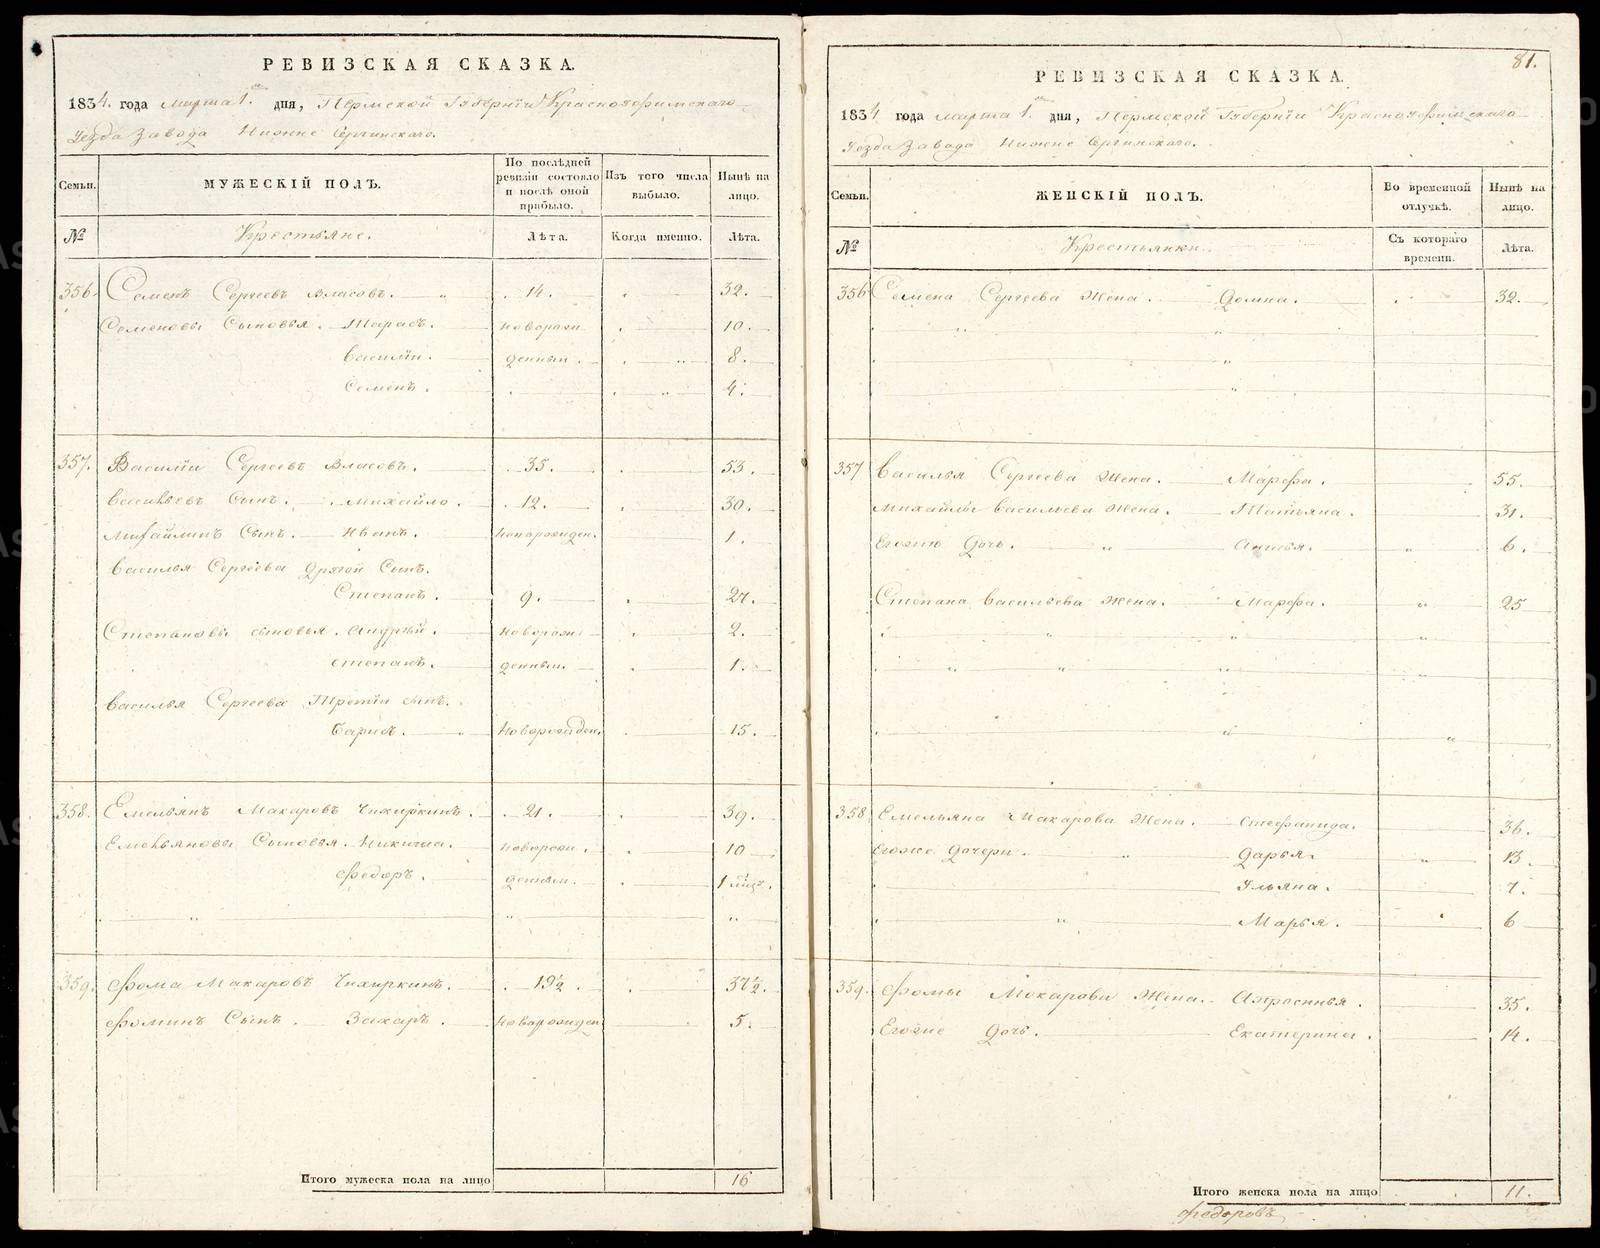 РЕВИЗСКАЯ СКАЗКА.
1834. года марта 1. дня, Пермской Губернїи Красноуфимскаго
Уезда Завода Нижне Сергинскаго.
Семьи. МУЖЕСКІЙ ПОЛЪ. По послѣдней ревизіи состояло и послѣ оной прибыло. Изъ того числа выбыло. Нынѣ на лицо.
№ Крестьяне. Лѣта. Когда именно. Лѣта.
356. Семенъ Сергеевъ Власовъ. 14. 32.
Семеновы Сыновья. Тарасъ. новорож 10.
Василїи. денныи. 8.
Семенъ. 4.
357. Василїи Сергеевъ Власовъ. 35. 53.
Васильевъ Сынъ. Михайло. 12. 30.
Михайлинъ Сынъ. Иванъ. новорожден. 1.
Василья Сергеева другой Сынъ.
Степанъ. 9. 27.
Степановы сыновья. Андрѣй. новорож 2.
степанъ. денныи. 1.
Василья Сергеева Третїи сынъ.
Барисъ. Новорожден. 15.
358. Емельянъ Макаровъ Чихиркинъ. 21. 39.
Емельяновы Сыновья. Никита. новорож. 10
Федоръ. денныи. 1
359. Фома Макаровъ Чихиркинъ. 19½. 37½.
Фоминъ Сынъ. Захаръ. Новарожден 5.
Итого мужеска пола на лицо 16
81.
РЕВИЗСКАЯ СКАЗКА.
1834 года марта 1. дня, Пермской Губернїи Красноуфимскаго
Уезда Завода Нижне Сергинскаго.
Семьи. ЖЕНСКІЙ ПОЛЪ. Во временной отлучкѣ. Нынѣ на лицо.
№ Крестьянки Съ котораго времени. Лѣта.
356 Семена Сергеева Жена. Домна. 32.
357 Василья Сергеева Жена. Марфа. 55.
Михайлы Васильева Жена. Татьяна. 31.
Егожъ Дочь. 6.
Степана Васильева Жена. Марфа. 25
358 Емельяна Макарова Жена. Стефанида. 36.
Егоже Дочери. Дарья. 13.
Ульяна. 7.
Марья. 6
359. Фомы Макарова Жена. Афросинья. 35.
Егоже Дочь. Екатерина. 14.
Итого женска пола на лицо 11.
Федоровъ